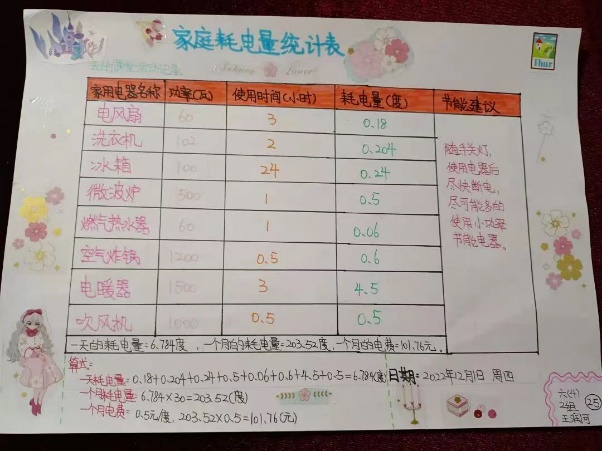 家庭耗电量统计表
Thur
家用电器名称 功率(瓦) 使用时间(小时) 耗电量(度) 节能建议
电风扇 60 3 0.18
洗衣机 102 2 0.204
冰箱 100 24 0.24
微波炉 500 1 0.5
燃气热水器 60 1 0.06
空气炸锅 1200 0.5 0.6
电暖器 1500 3 4.5
吹风机 1000 0.5 0.5
随手关灯,
使用电器后
尽快断电,
尽可能多的
使用小功率
节能电器。
一天的耗电量=6.784度,一个月的耗电量=203.52度,一个月的电费=101.76元。
算式:
一天耗电量:0.18+0.204+0.24+0.5+0.06+0.6+4.5+0.5=6.784(度)
一个月耗电量:6.784×30=203.52(度)
一个月电费:0.5元/度,203.52×0.5=101.76(元)
日期: 2022年12月1日 周四
六(4)
2组
25